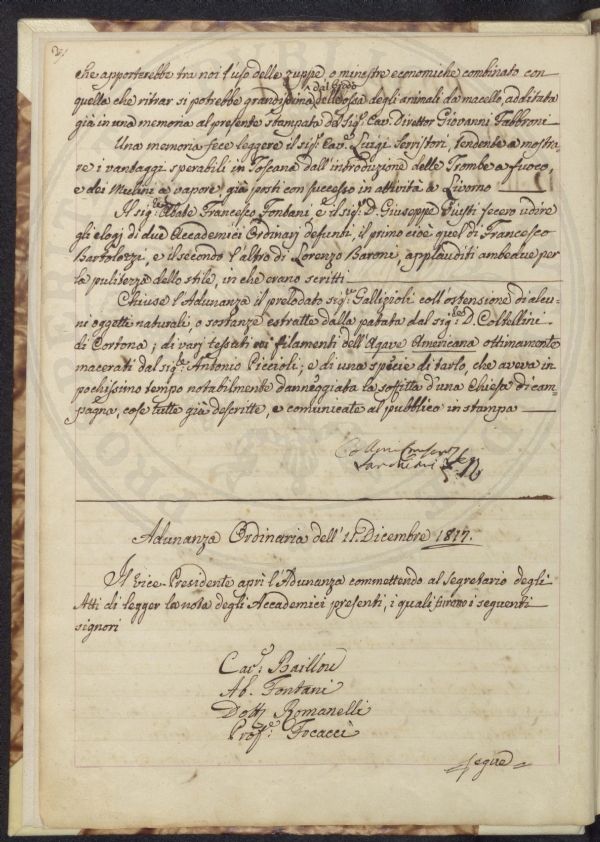 che apporterebbe tra noi l'uso delle zuppe, o minestre economiche combinato con
quella che ritrar si potrebbe grandissima dal brodo dell'ossa degli animali da macello, additata
già in una memoria al presente stampata dal Sig.r Cav. Direttor Giovanni Fabbroni
Una memoria fece leggere il sig.r Cav.e Luigi Serristori, tendente a mostra-
re i vantaggi sperabili in Toscana dall'introduzione delle Trombe a fuoco,
e dei Mulini a vapore, già posti con successo in attività a Livorno
Il sig.re Abate Francesco Fontani e il sig.r D. Giuseppe Giusti fecero udire
gli elogj di due Accademici Ordinarj defunti, il primo cioè quel di Francesco
Bartolozzi, e il secondo l'altro di Lorenzo Baroni, applauditi ambedue per
la pulitezza dello stile, in che erano scritti
Chiuse l'Adunanza il prelodato sig.r Gallizioli coll'ostensione di alcu-
ni oggetti naturali, o sostanze estratte dalla patata dal sig.re D. Coltellini
di Cortona; di varj tessuti filamenti dell'Agave Americana ottimamente
macerati dal sig.re Antonio Piccioli; e di una specie di tarlo, che aveva in
pochissimo tempo notabilmente danneggiata la soffitta d'una Chiesa di cam-
pagna, cose tutte già descritte, e comunicate al pubblico in stampa
Adunanza Ordinaria dell' Dicembre 1817.
Il vice-Presidente aprì l'Adunanza commettendo al Segretario degli
Atti di legger la nota degli Accademici presenti, i quali furono i seguenti
signori
Cav.e Baillou
Ab. Fontani
Dott. Romanelli
Prof.e Focacci
segue